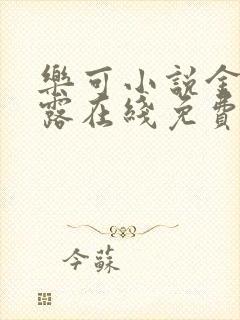 樂可小說金
露在綫免費
今蘇